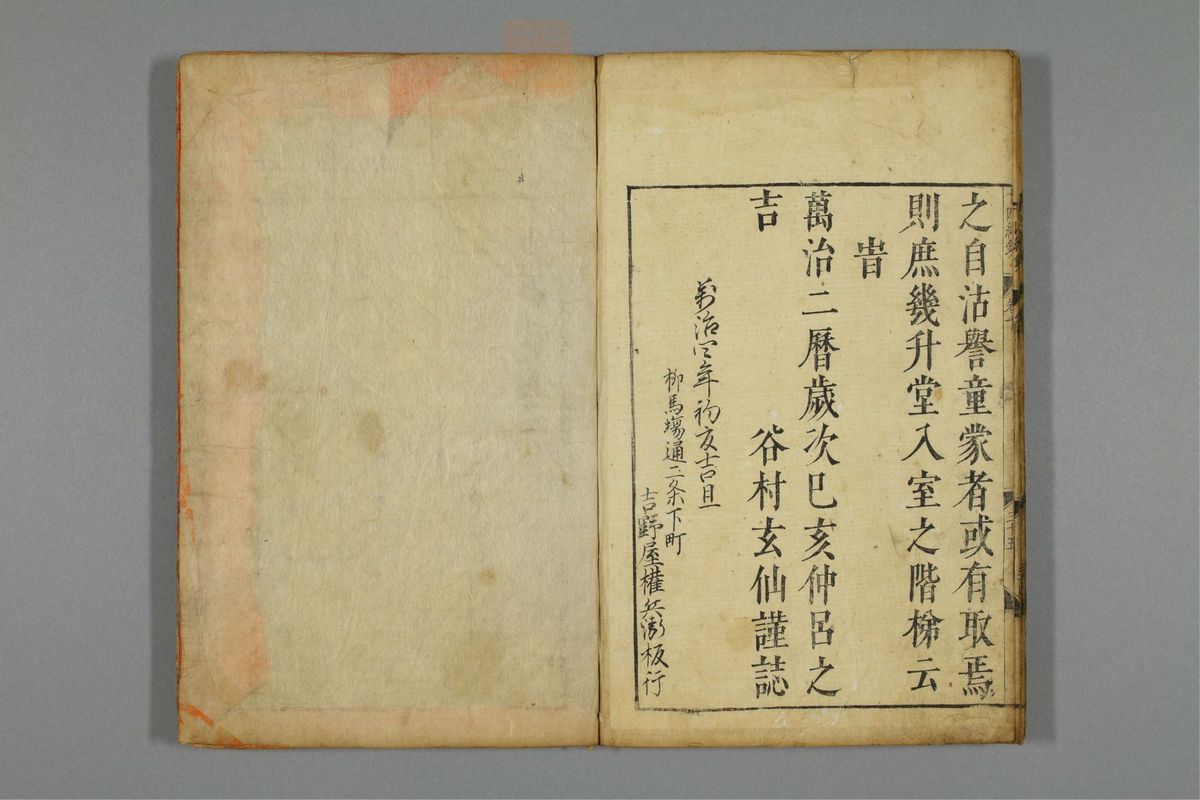 之自沽譽童蒙者或有取焉
則庶幾升堂入室之階梯云
旹
萬治二曆歲次巳亥仲呂之
吉　　　谷村玄仙謹誌
萬治四年初夏吉旦
柳馬場通二条下町
吉野屋權兵衞板行